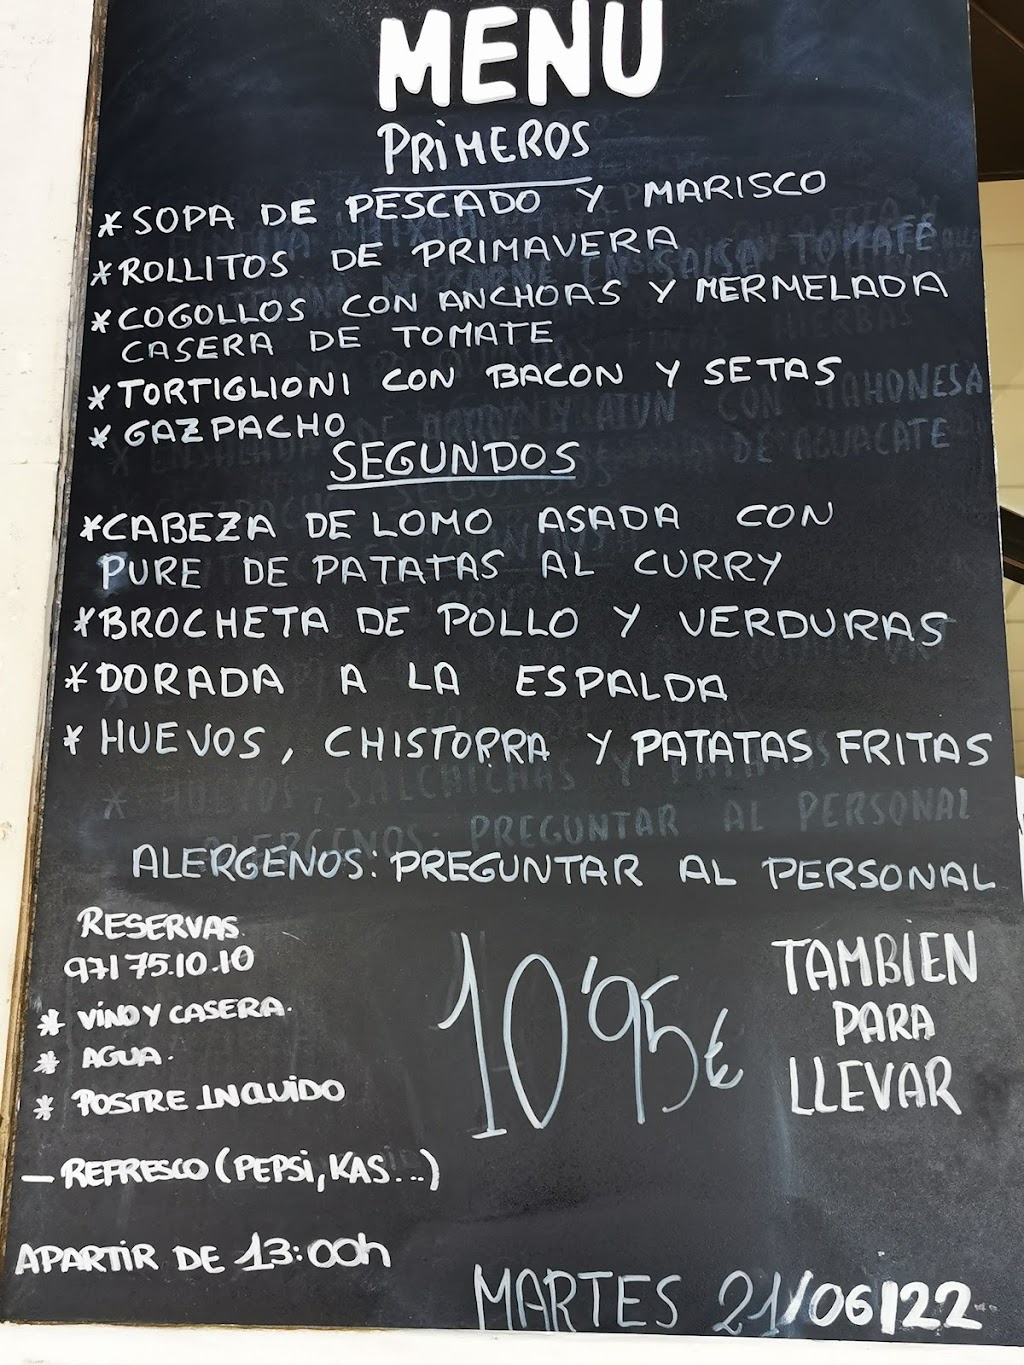 MENU
PRIMEROS
* SOPA DE PESCADO Y MARISCO
* ROLLITOS DE PRIMAVERA
* COGOLLOS CON ANCHOAS Y MERMELADA
CASERA DE TOMATE
* TORTIGLIONI CON BACON Y SETAS
* GAZPACHO
SEGUNDOS
* CABEZA DE LOMO ASADA CON
PURE DE PATATAS AL CURRY
* BROCHETA DE POLLO Y VERDURAS
* DORADA A LA ESPALDA
* HUEVOS, CHISTORRA Y PATATAS FRITAS
ALERGENOS: PREGUNTAR AL PERSONAL
RESERVAS
971 75.10.10
* VINO Y CASERA.
* AGUA.
* POSTRE INCLUIDO
— REFRESCO (PEPSI, KAS...)
APARTIR DE 13:00h
10'95€
TAMBIEN
PARA
LLEVAR
MARTES 21/06/22